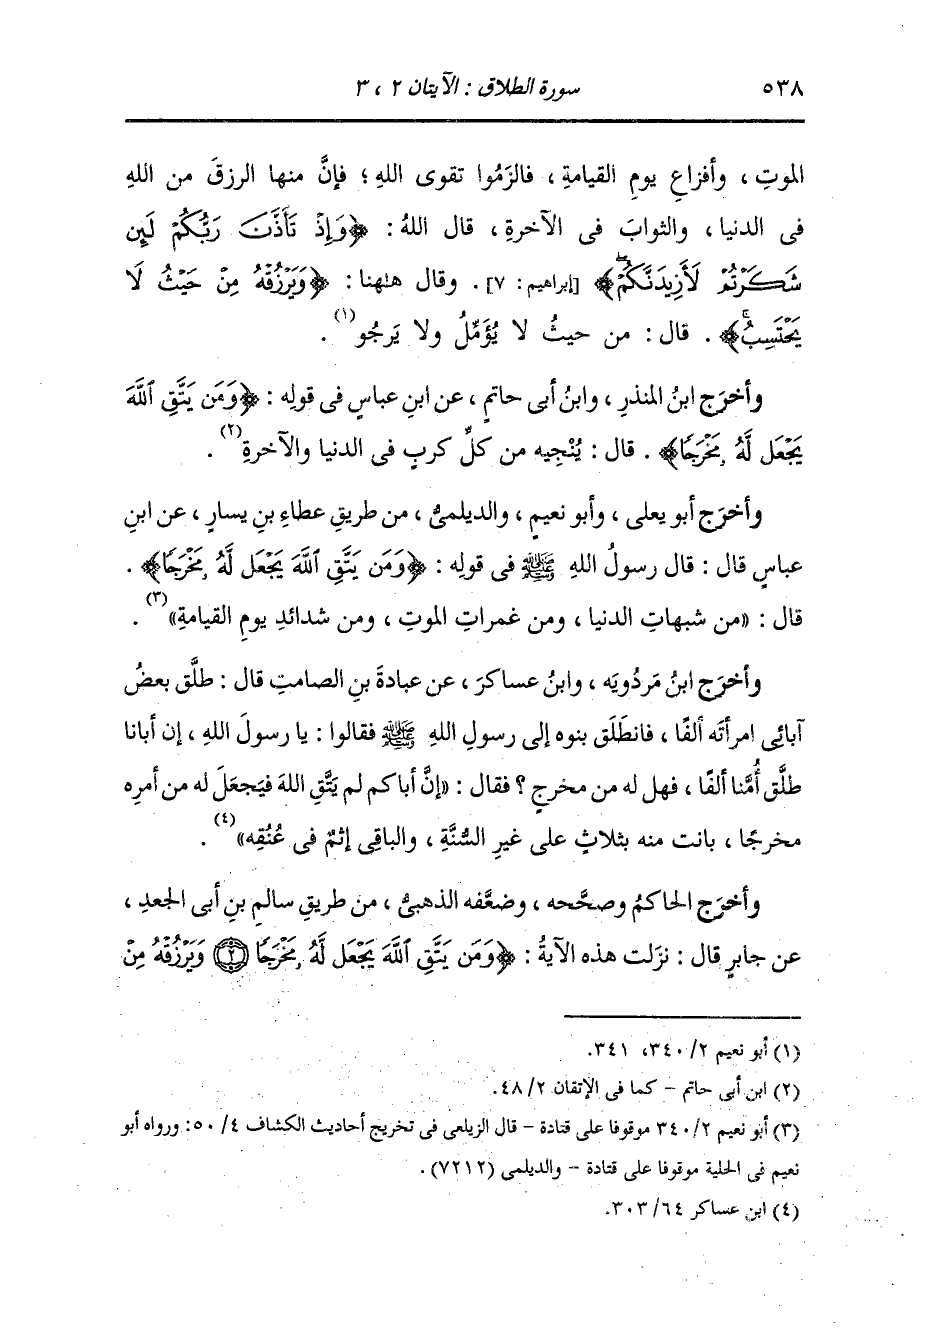 ٥٣٨ سورة الطلاق : الآيتان ٢ ، ٣
الموتِ ، وأفزاعِ يومِ القيامةِ ، فالزَمُوا تقوى اللهِ ؛ فإنَّ منها الرزقَ من اللهِ
فى الدنيا ، والثوابَ فى الآخرةِ ، قال اللهُ : ﴿وَإِذْ تَأَذَّنَ رَبُّكُمْ لَئِن
شَكَرْتُمْ لَأَزِيدَنَّكُمْ﴾ [إبراهيم : ٧] . وقال هلهنا : ﴿وَيَرْزُقْهُ مِنْ حَيْثُ لَا
يَحْتَسِبُ﴾ . قال : من حيثُ لا يُؤَمِّلُ ولا يَرجُو(١) .
وأخرَج ابنُ المنذرِ ، وابنُ أبى حاتمٍ ، عن ابنِ عباسٍ فى قولِه : ﴿وَمَن يَتَّقِ ٱللَّهَ
يَجْعَل لَّهُۥ مَخْرَجًا﴾ . قال : يُنْجِيه من كلِّ كربٍ فى الدنيا والآخرةِ(٢) .
وأخرَج أبو يعلى ، وأبو نعيمٍ ، والديلمىُّ ، من طريقِ عطاءِ بنِ يسارٍ ، عن ابنِ
عباسٍ قال : قال رسولُ اللهِ ﷺ فى قولِه : ﴿وَمَن يَتَّقِ ٱللَّهَ يَجْعَل لَّهُۥ مَخْرَجًا﴾ .
قال : «من شبهاتِ الدنيا ، ومن غمراتِ الموتِ ، ومن شدائدِ يومِ القيامةِ»(٣) .
وأخرَج ابنُ مَردُويَه ، وابنُ عساكرَ ، عن عبادةَ بنِ الصامتِ قال : طلَّق بعضُ
آبائِى امرأتَه ألفًا ، فانطَلَق بنوه إلى رسولِ اللهِ ﷺ فقالوا : يا رسولَ اللهِ ، إن أبانا
طلَّق أُمَّنا ألفًا ، فهل له من مخرجٍ ؟ فقال : «إنَّ أباكم لم يَتَّقِ اللهَ فيَجعَلَ له من أمرِه
مخرجًا ، بانت منه بثلاثٍ على غيرِ السُّنَّةِ ، والباقِى إثمٌ فى عُنُقِه»(٤) .
وأخرَج الحاكمُ وصحَّحه ، وضعَّفه الذهبىُّ ، من طريقِ سالمِ بنِ أبى الجعدِ ،
عن جابرٍ قال : نزَلت هذه الآيةُ : ﴿وَمَن يَتَّقِ ٱللَّهَ يَجْعَل لَّهُۥ مَخْرَجًا ٢ وَيَرْزُقْهُ مِنْ
(١) أبو نعيم ٢/ ٣٤٠، ٣٤١.
(٢) ابن أبى حاتم - كما فى الإتقان ٢/ ٤٨.
(٣) أبو نعيم ٢/ ٣٤٠ موقوفا على قتادة - قال الزيلعى فى تخريج أحاديث الكشاف ٤/ ٥٠: ورواه أبو
نعيم فى الحلية موقوفا على قتادة - والديلمى (٧٢١٢) .
(٤) ابن عساكر ٦٤/ ٣٠٣.